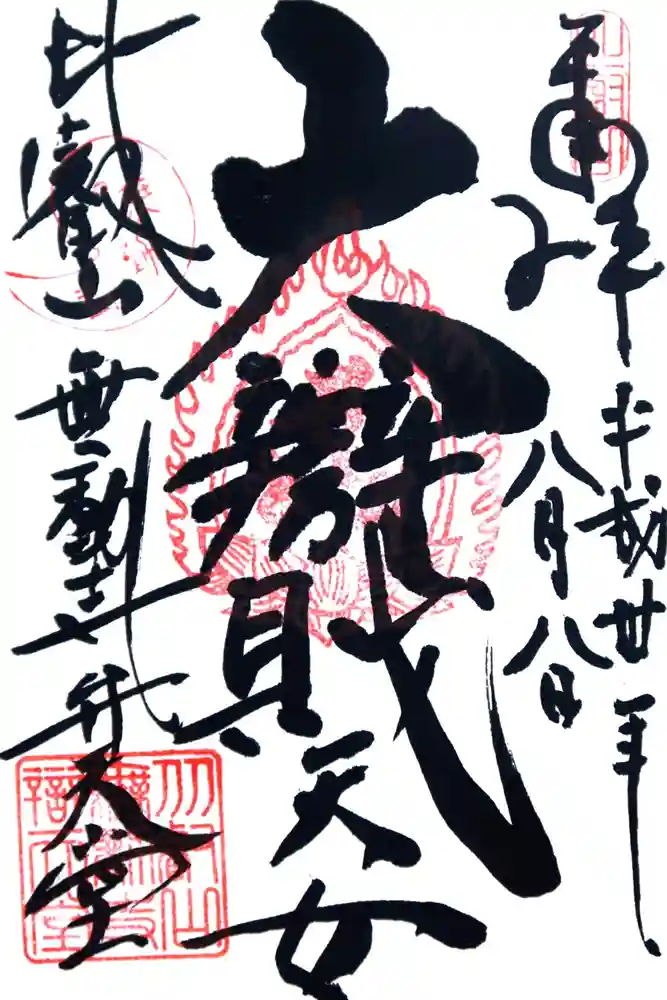 奉拝
平成廿年
八月八日
大辯財天女
比叡山
無動寺弁天堂